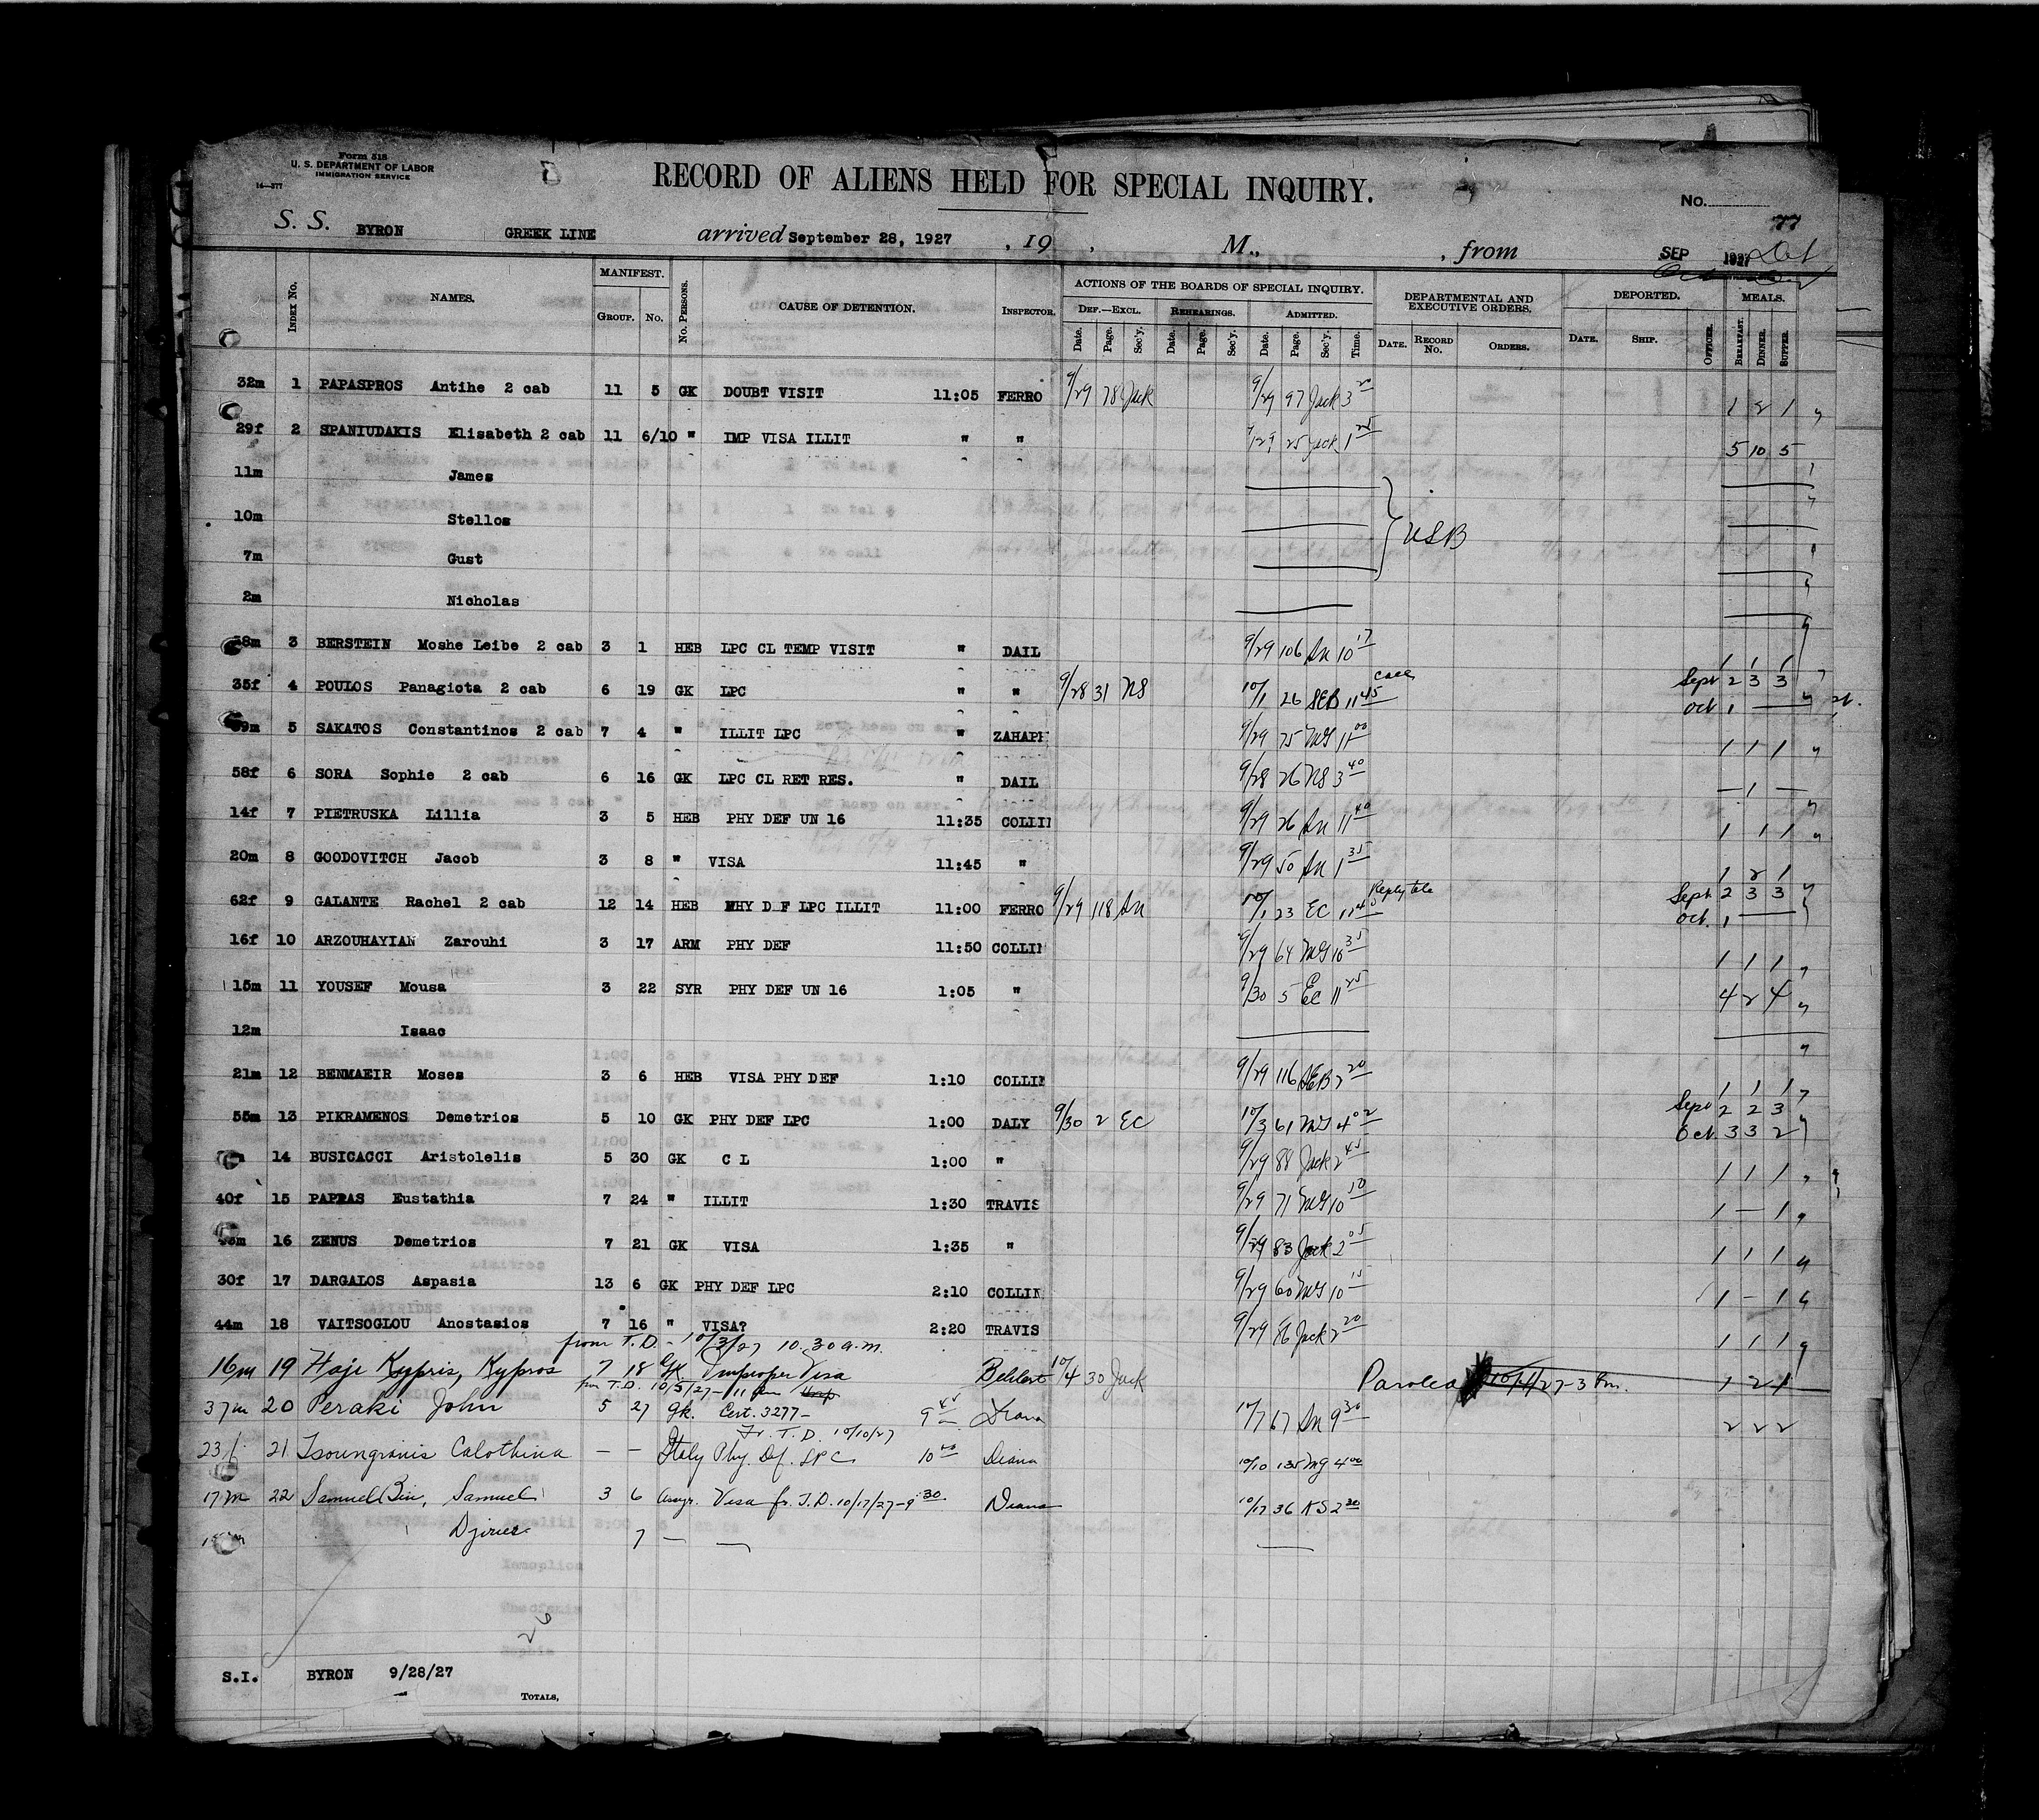 Form 518
U. S. DEPARTMENT OF LABOR
IMMIGRATION SERVICE
14—577
RECORD OF ALIENS HELD FOR SPECIAL INQUIRY.
No.
77
S. S. BYRON GREEK LINE arrived September 28, 1927, 19 , M., , from SEP 1927 Oct
INDEX No. NAMES. MANIFEST. GROUP. No. No. PERSONS. CAUSE OF DETENTION. INSPECTOR. ACTIONS OF THE BOARDS OF SPECIAL INQUIRY. DEF.—EXCL. Date. Page. Sec'y. REHEARINGS. Date. Page. Sec'y. ADMITTED. Date. Page. Sec'y. Time. DEPARTMENTAL AND EXECUTIVE ORDERS. DATE. RECORD No. ORDERS. DEPORTED. DATE. SHIP. OFFICER. MEALS. BREAKFAST. DINNER. SUPPER.
32m 1 PAPASPROS Antihe 2 cab 11 5 GK DOUBT VISIT 11:05 FERRO 9/29 78 Jack 9/29 97 Jack 3 20 1 2 1
29f 2 SPANIUDAKIS Elisabeth 2 cab 11 6/10 " IMP VISA ILLIT " " 9/29 25 Jack 1 25 5 10 5
11m James
10m Stellos USB
7m Gust
2m Nicholas
38m 3 BERSTEIN Moshe Leibe 2 cab 3 1 HEB LPC CL TEMP VISIT " DAIL 9/29 106 An 10 17 1 1 1
35f 4 POULOS Panagiota 2 cab 6 19 GK LPC " " 9/28 31 NS 10/1 26 SEB 11 45 Sept 2 3 3
Oct 1
5 SAKATOS Constantinos 2 cab 7 4 " ILLIT LPC " ZAHAPH 9/29 75 MG 11 00 1 1 1
58f 6 SORA Sophie 2 cab 6 16 GK LPC CL RET RES. " DAIL 9/28 26 NS 3 40 — 1 —
14f 7 PIETRUSKA Lillia 3 5 HEB PHY DEF UN 16 11:35 COLLIN 9/29 26 An 11 40 1 1 1
20m 8 GOODOVITCH Jacob 3 8 " VISA 11:45 " 9/29 50 An 1 35 1 2 1
62f 9 GALANTE Rachel 2 cab 12 14 HEB PHY D F LPC ILLIT 11:00 FERRO 9/29 118 An 10/1 23 EC Reply tele Sept 2 3 3
Oct. 1
16f 10 ARZOUHAYIAN Zarouhi 3 17 ARM PHY DEF 11:50 COLLIN 9/29 64 MG 10 35 1 1 1
15m 11 YOUSEF Mousa 3 22 SYR PHY DEF UN 16 1:05 " 9/30 5 EC 11 25 4 2 4
12m Isaac
21m 12 BENMAEIR Moses 3 6 HEB VISA PHY DEF 1:10 COLLIN 9/29 116 SEB 2 20 1 1 1
55m 13 PIKRAMENOS Demetrios 5 10 GK PHY DEF LPC 1:00 DALY 9/30 2 EC 10/3 61 MG 4 02 Sept 2 2 3
Oct. 3 3 2
14 BUSICACCI Aristolelis 5 30 GK C L 1:00 " 9/29 88 Jack 2 45 1 1 1
40f 15 PAPRAS Eustathia 7 24 " ILLIT 1:30 TRAVIS 9/29 71 MG 10 10 1 — 1
16 ZENUS Demetrios 7 21 GK VISA 1:35 " 9/29 83 Jack 2 05 1 1 1
30f 17 DARGALOS Aspasia 13 6 GK PHY DEF LPC 2:10 COLLIN 9/29 60 MG 10 15 1 - 1
44m 18 VAITSOGLOU Anostasios 7 16 " VISA? 2:20 TRAVIS 9/29 86 Jack 2 20 1 1 1
from T.D. - 10/3/27 10.30 a.m.
16m 19 Haji Kypris, Kypros 7 18 Gk Improper Visa 10/4 30 Jack Paroled 3 Pm. 1 2 1
fm T.D. 10/5/27 - 11 am
37m 20 Peraki John 5 27 Gk. Cert. 3277 - 9 45 Diana 10/7 67 An 9 30 2 2 2
Fr. T.D. 10/10/27
23f 21 Tsoungranis Calothina — — Italy Phy. Def. LPC 10 40 Diana 10/10 135 MG 4 00
17m 22 Samuel Bin, Samuel 3 6 Assyr. Visa fr. T.D. 10/17/27 - 9 30 Diana 10/17 36 KS 2 30
7 — —
26
S.I. BYRON 9/28/27
TOTALS,